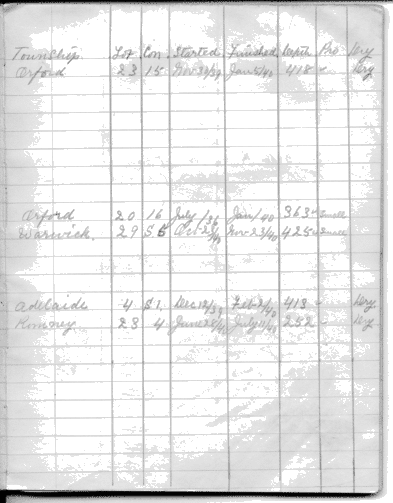 Township Lot Con. Started Finished Depth Pro Dry
Orford 23 15 Nov 30/39 Jan 5/40 418 - Dry
Orford 20 16 July /36 Jan/40 363 - Small
Warwick. 29 S.5 Nov-23/40 425 - Small
Adelaide 4 S1. Dec 12/39 Feb 2/40 413 - Dry
Romney 23 4 June /40 July 11/40 252 - Dry